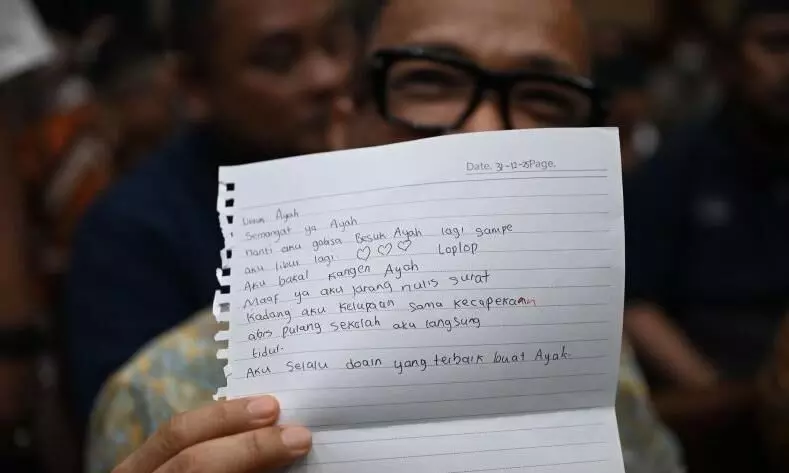 Date. 31-12-25 Page.
Untuk Ayah
Semangat ya Ayah
nanti aku gabisa Besuk Ayah lagi sampe
aku libur lagi ♡♡♡ Loplop
Aku bakal kangen Ayah
Maaf ya aku jarang nulis surat
Kadang aku kelupaan sama kecapekaan
abis pulang sekolah aku langsung
tidur.
Aku selalu doain yang terbaik buat Ayah.